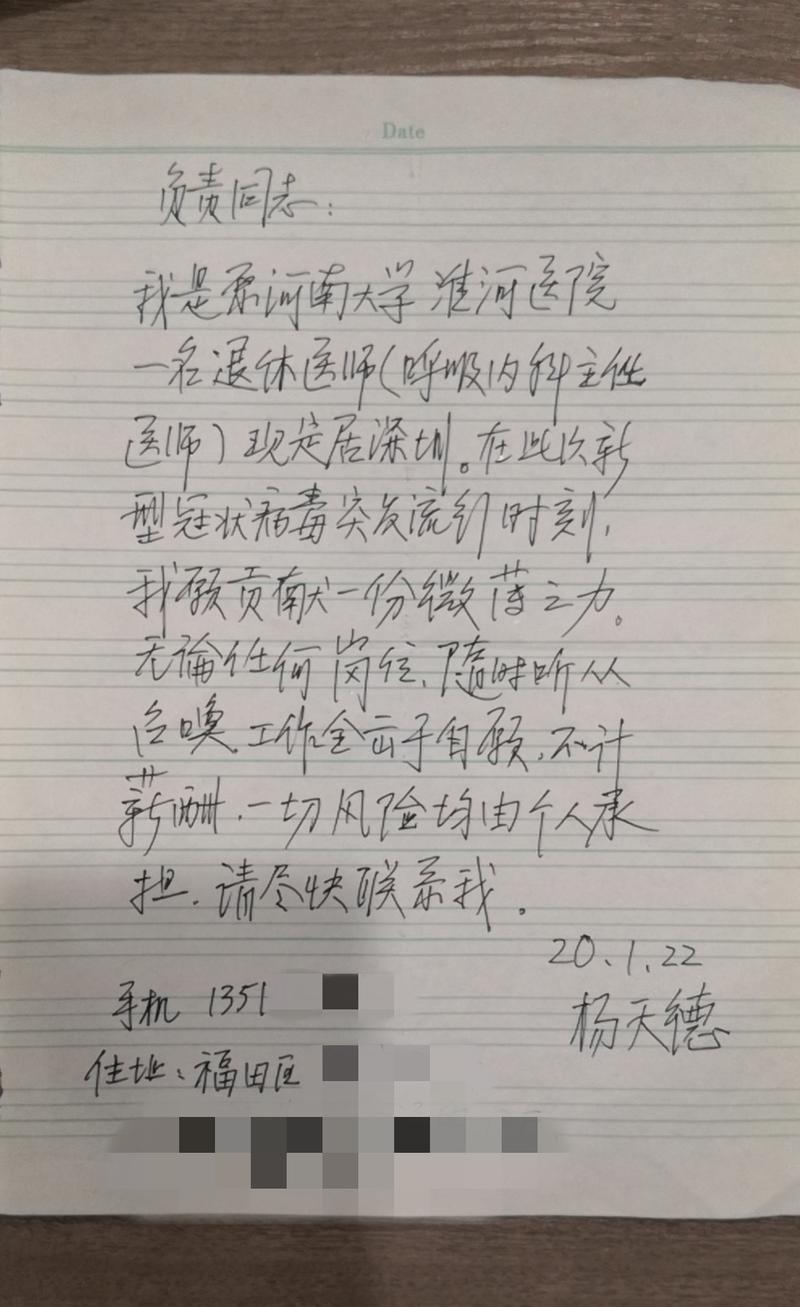 Date
负责同志：
我是原河南大学淮河医院
一名退休医师（呼吸内科主任
医师）现定居深圳。在此次新
型冠状病毒突发流行时刻，
我愿贡献一份微薄之力。
无论任何岗位，随时听从
召唤，工作全出于自愿，不计
薪酬，一切风险均由个人承
担，请尽快联系我。
20.1.22
杨天德
手机 1351
住址：福田区